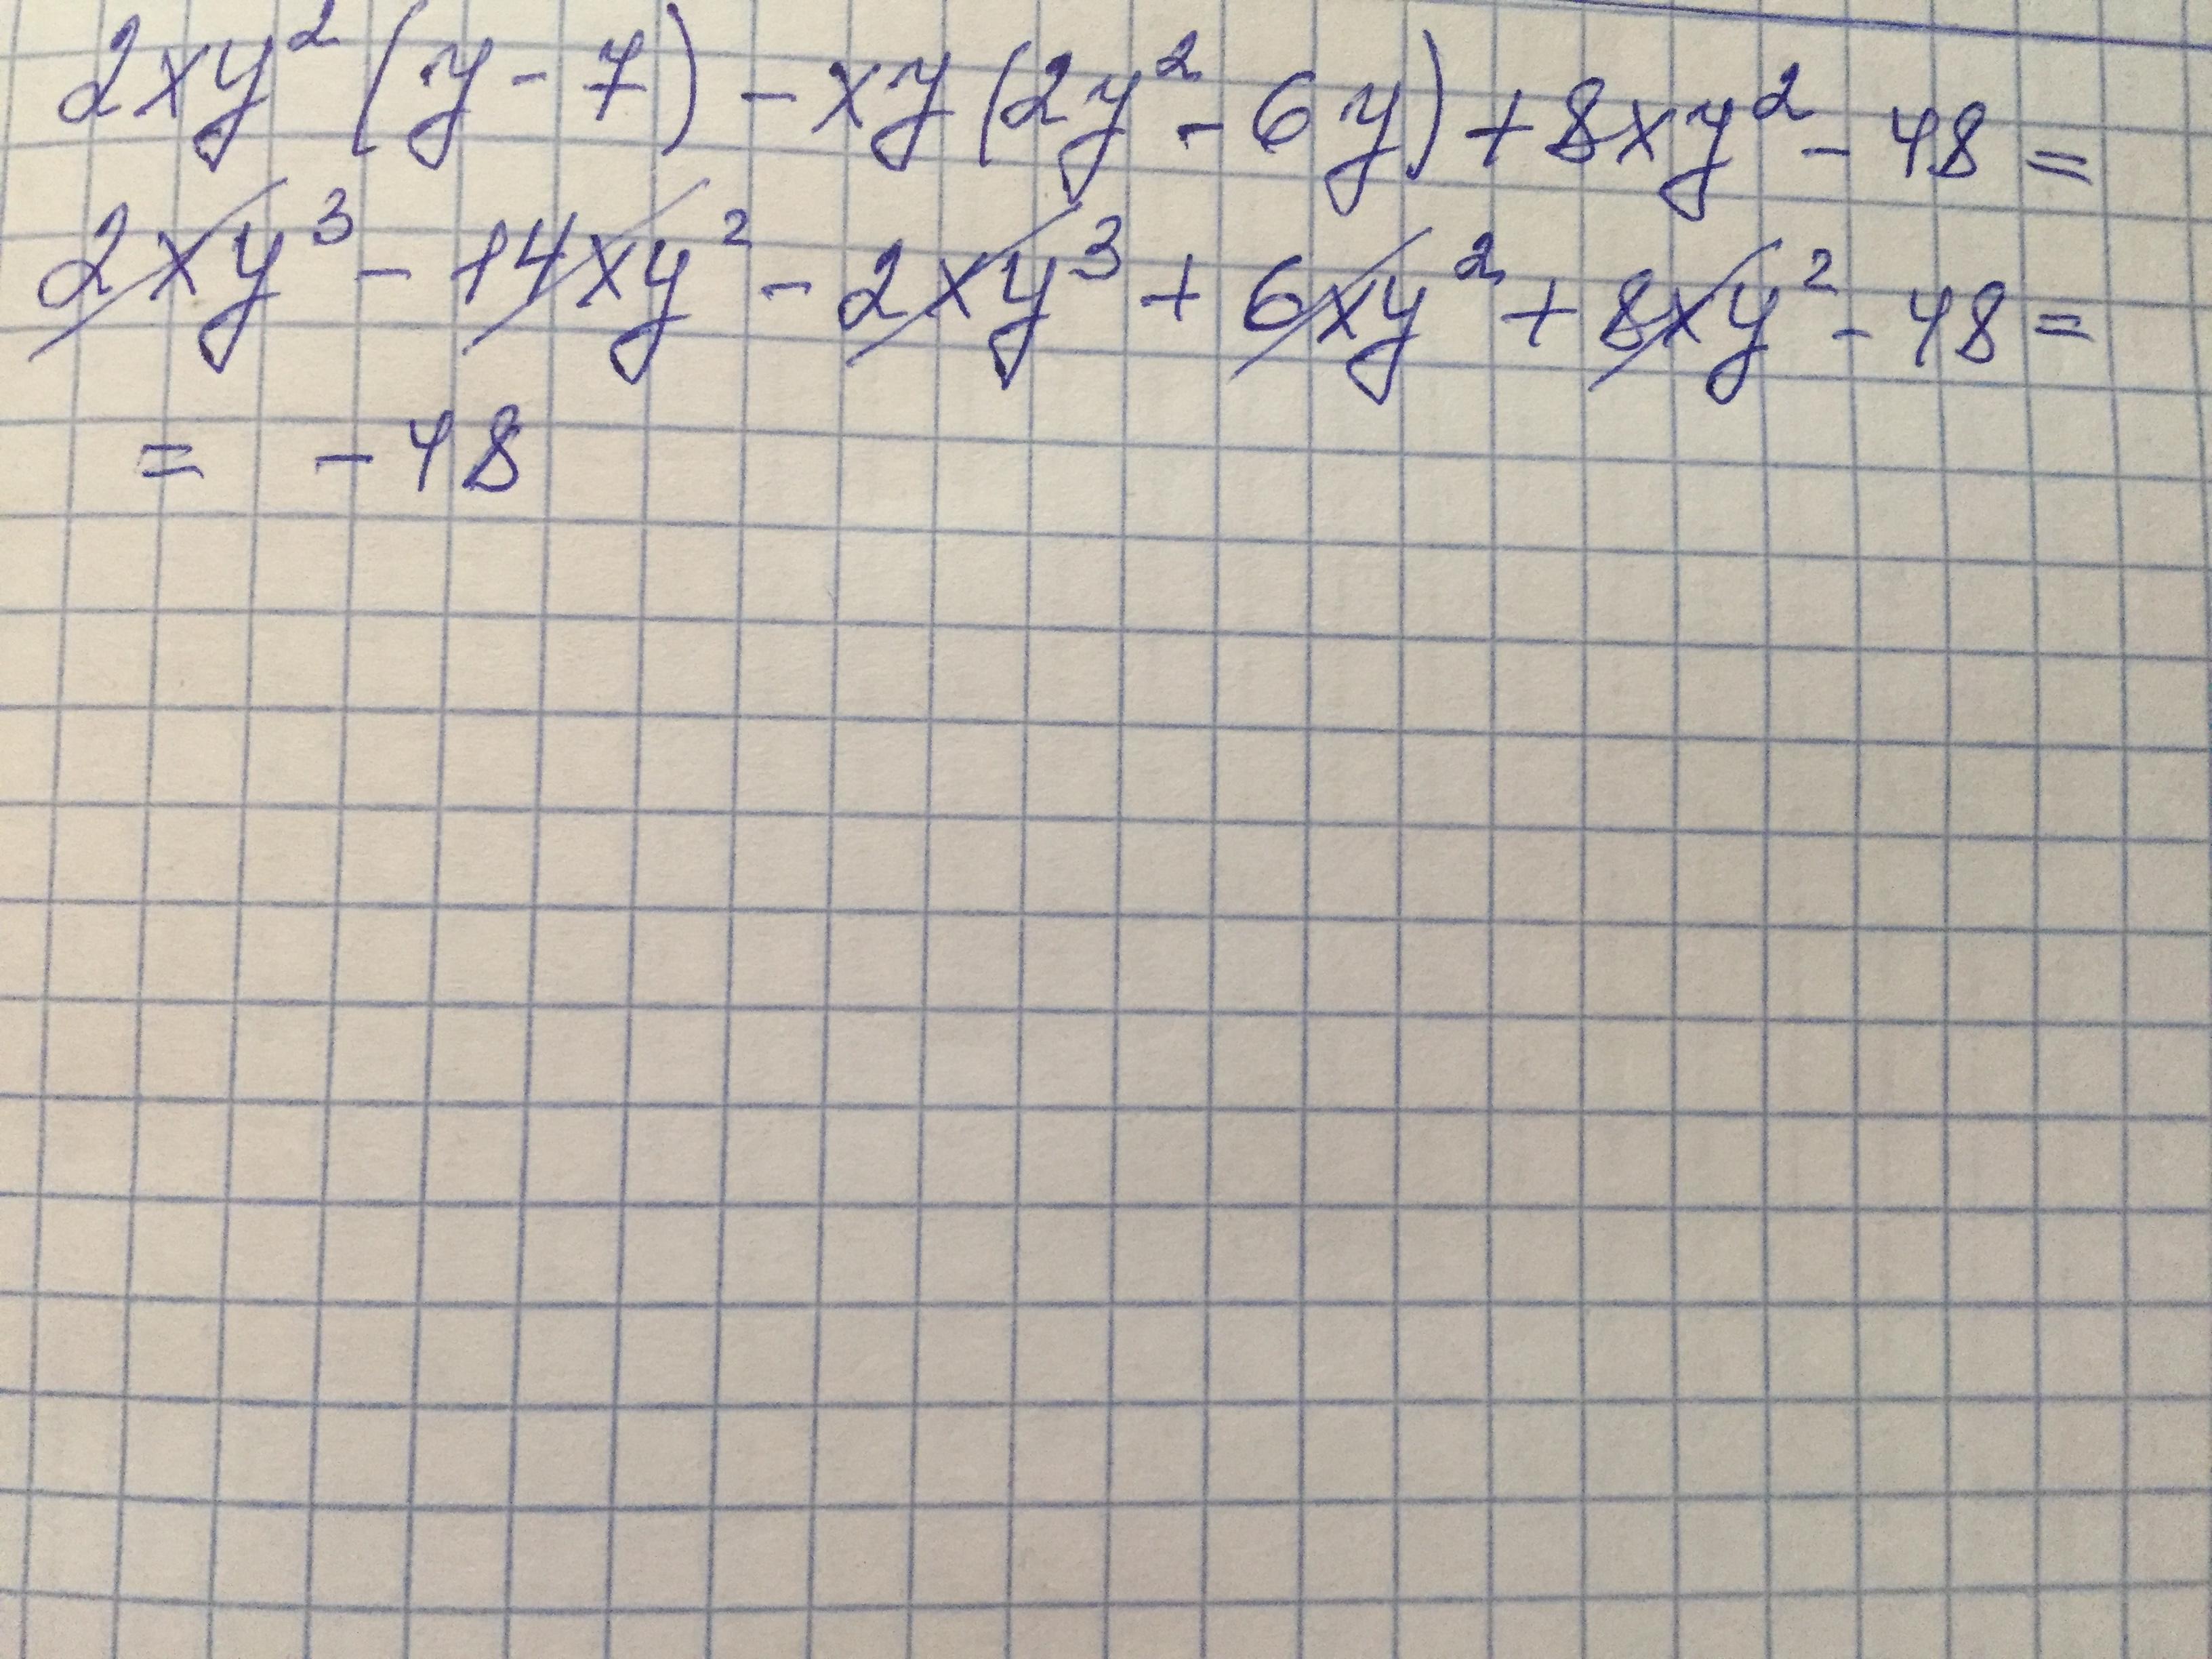 2xy² (y - 7) - xy (2y² - 6y) + 8xy² - 48 =
2xy³ - 14xy² - 2xy³ + 6xy² + 8xy² - 48 =
= - 48